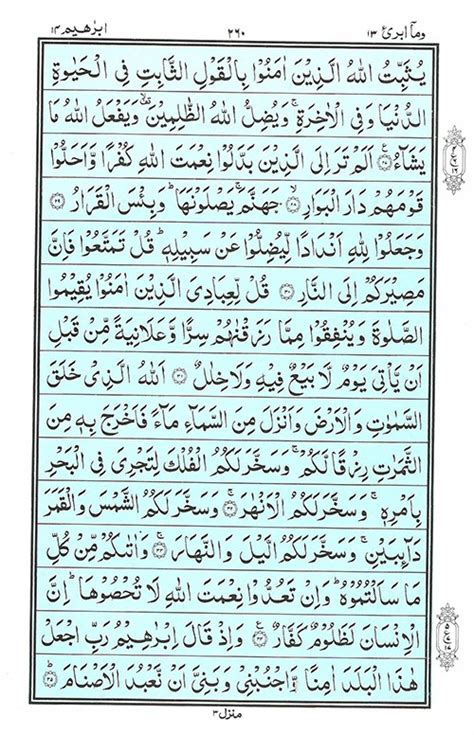 ابرٰهيم ١٤ ٢٦٠ وما ابرئ ١٣
يُثَبِّتُ اللّٰهُ الَّذِيْنَ اٰمَنُوْا بِالْقَوْلِ الثَّابِتِ فِى الْحَيٰوةِ
الدُّنْيَا وَفِى الْاٰخِرَةِ ۚ وَيُضِلُّ اللّٰهُ الظّٰلِمِيْنَ ۙ وَيَفْعَلُ اللّٰهُ مَا
يَشَآءُ ۝٢٧ اَلَمْ تَرَ اِلَى الَّذِيْنَ بَدَّلُوْا نِعْمَتَ اللّٰهِ كُفْرًا وَّاَحَلُّوْا
قَوْمَهُمْ دَارَ الْبَوَارِ ۝٢٨ جَهَنَّمَ ۚ يَصْلَوْنَهَا ؕ وَبِئْسَ الْقَرَارُ ۝٢٩
وَجَعَلُوْا لِلّٰهِ اَنْدَادًا لِّيُضِلُّوْا عَنْ سَبِيْلِهٖ ؕ قُلْ تَمَتَّعُوْا فَاِنَّ
مَصِيْرَكُمْ اِلَى النَّارِ ۝٣٠ قُلْ لِّعِبَادِىَ الَّذِيْنَ اٰمَنُوْا يُقِيْمُوا
الصَّلٰوةَ وَيُنْفِقُوْا مِمَّا رَزَقْنٰهُمْ سِرًّا وَّعَلَانِيَةً مِّنْ قَبْلِ
اَنْ يَّاْتِىَ يَوْمٌ لَّا بَيْعٌ فِيْهِ وَلَا خِلٰلٌ ۝٣١ اَللّٰهُ الَّذِىْ خَلَقَ
السَّمٰوٰتِ وَالْاَرْضَ وَاَنْزَلَ مِنَ السَّمَآءِ مَآءً فَاَخْرَجَ بِهٖ مِنَ
الثَّمَرٰتِ رِزْقًا لَّكُمْ ۚ وَسَخَّرَ لَكُمُ الْفُلْكَ لِتَجْرِىَ فِى الْبَحْرِ
بِاَمْرِهٖ ۚ وَسَخَّرَ لَكُمُ الْاَنْهٰرَ ۝٣٢ وَسَخَّرَ لَكُمُ الشَّمْسَ وَالْقَمَرَ
دَآئِبَيْنِ ۚ وَسَخَّرَ لَكُمُ الَّيْلَ وَالنَّهَارَ ۝٣٣ وَاٰتٰىكُمْ مِّنْ كُلِّ
مَا سَاَلْتُمُوْهُ ؕ وَاِنْ تَعُدُّوْا نِعْمَتَ اللّٰهِ لَا تُحْصُوْهَا ؕ اِنَّ
الْاِنْسَانَ لَظَلُوْمٌ كَفَّارٌ ۝٣٤ وَاِذْ قَالَ اِبْرٰهِيْمُ رَبِّ اجْعَلْ
هٰذَا الْبَلَدَ اٰمِنًا وَّاجْنُبْنِىْ وَبَنِىَّ اَنْ نَّعْبُدَ الْاَصْنَامَ ۝٣٥
منزل ٣